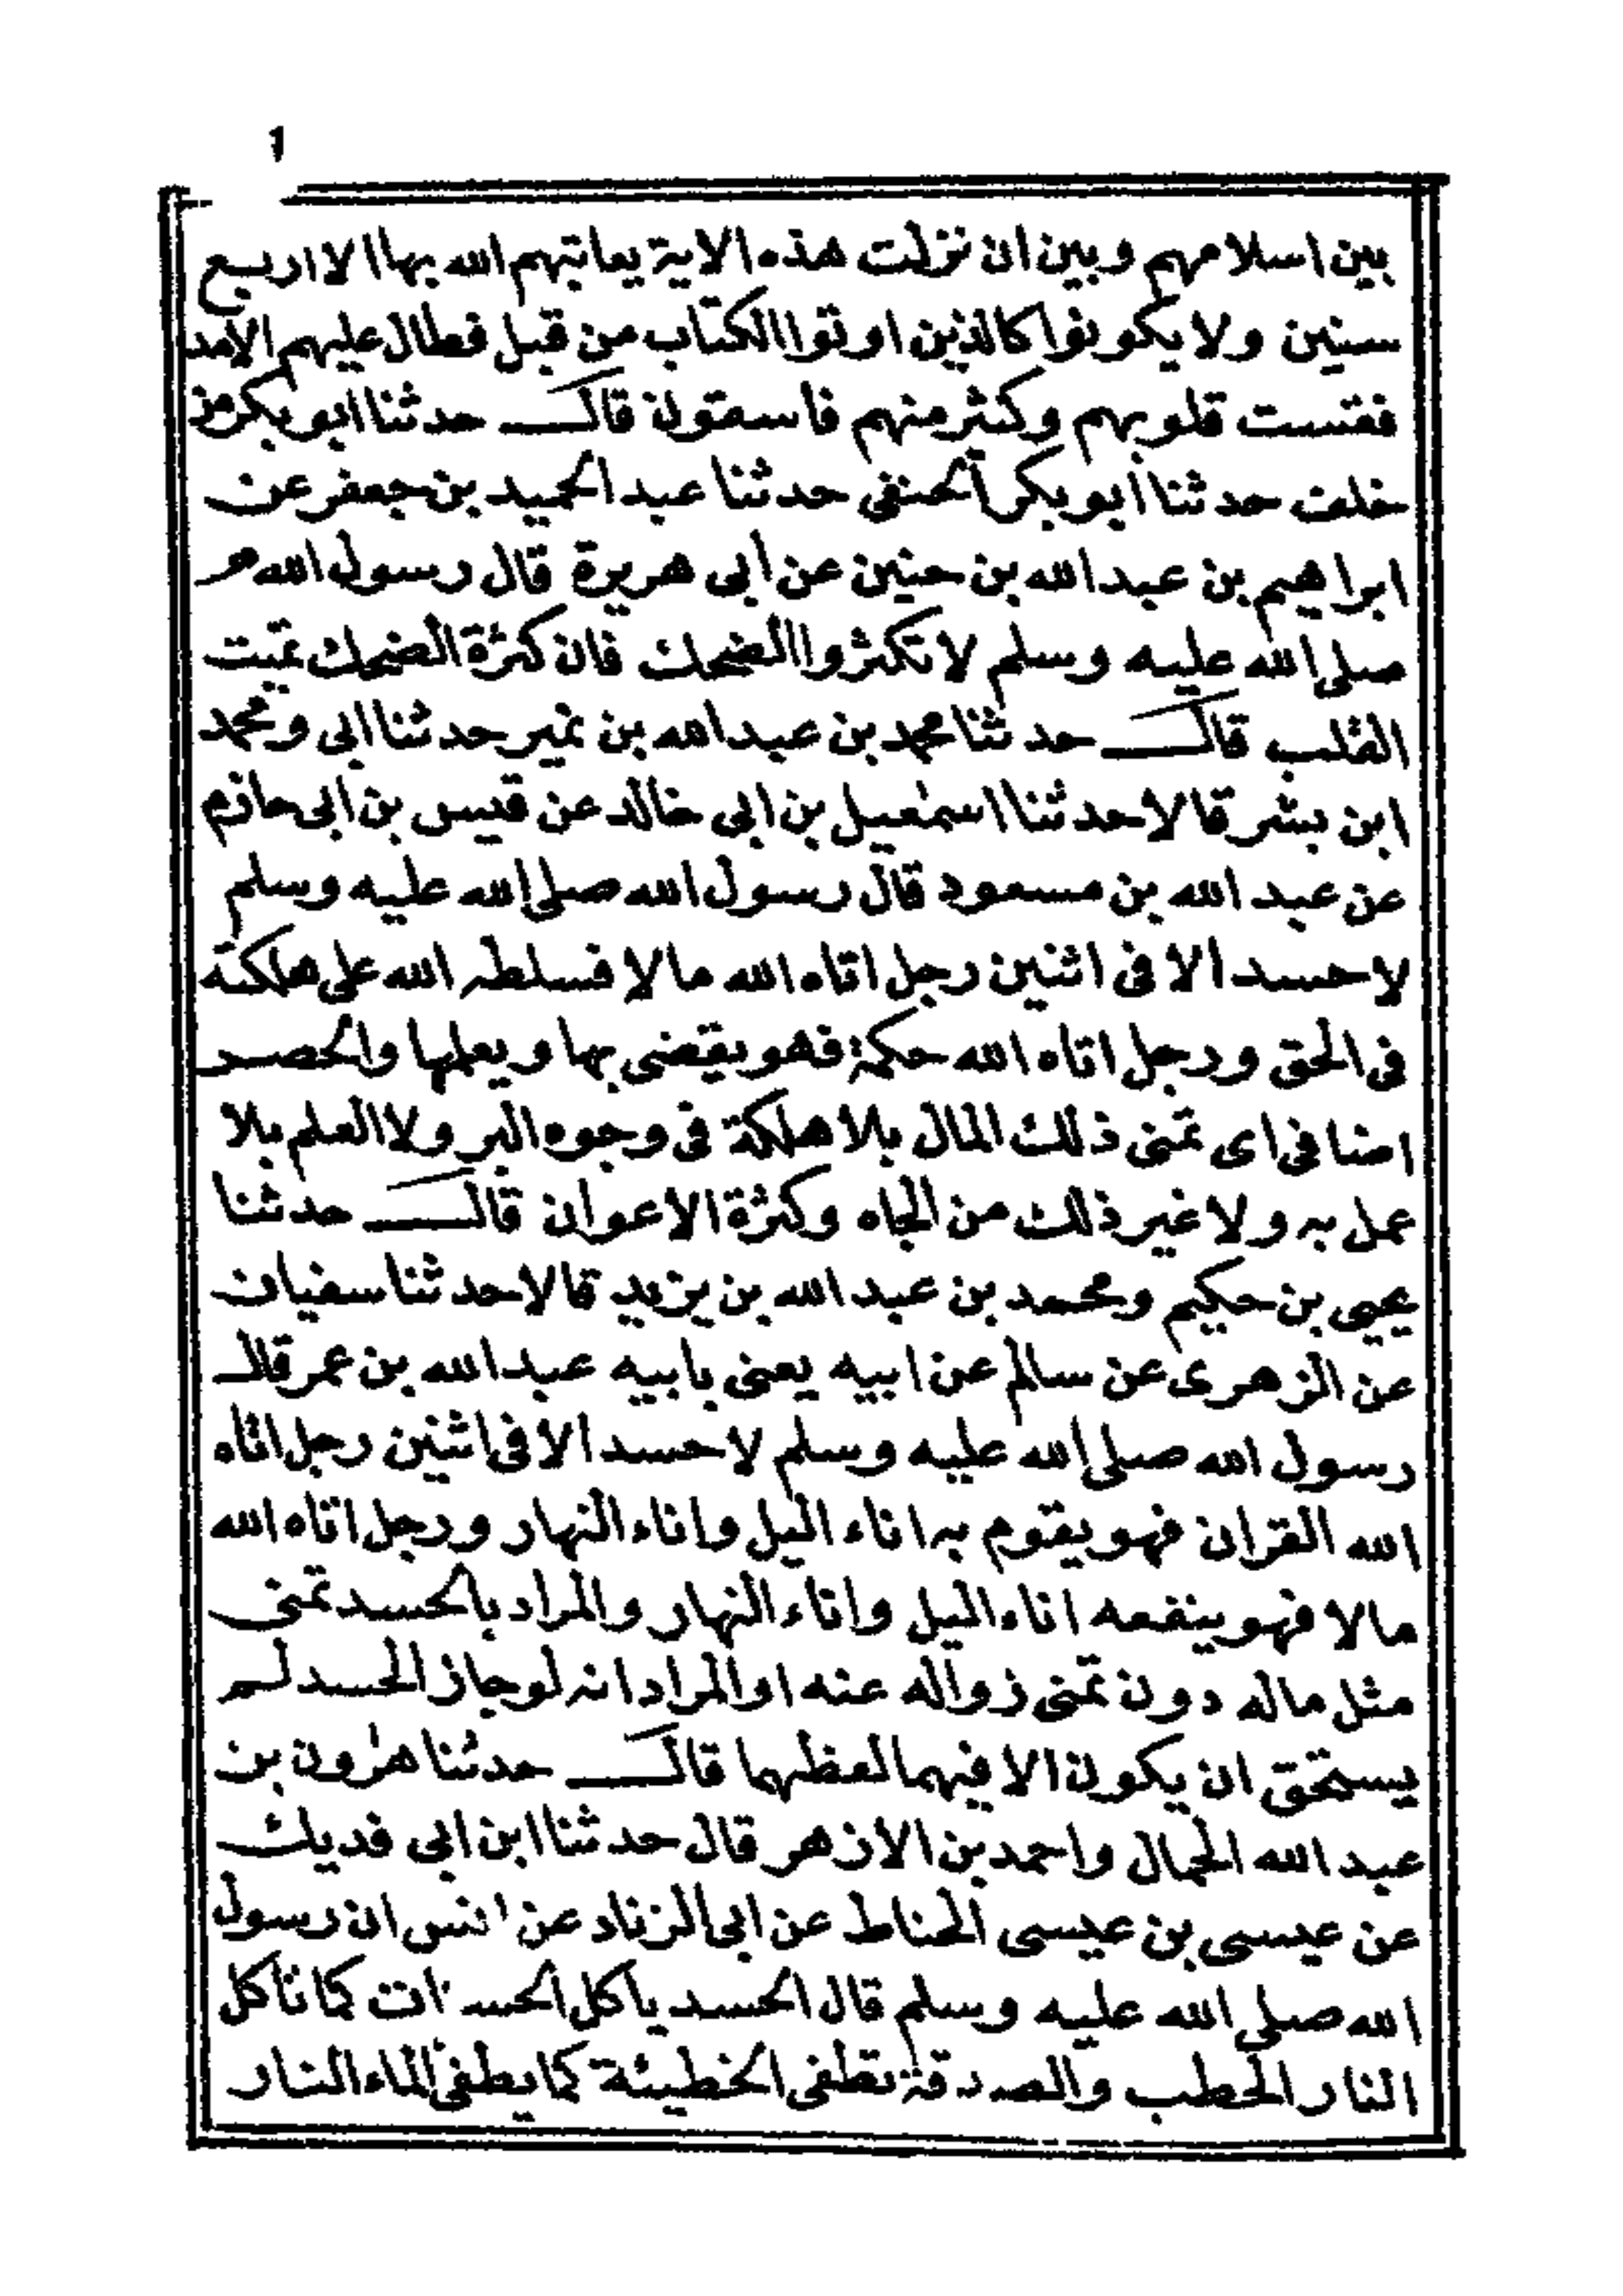 ١
بين اسلامهم وبين ان نزلت هذه الاية يعاتبهم الله بها الا اربع
سنين ولا يكونوا كالذين اوتوا الكتاب من قبل فطال عليهم الامد
فقست قلوبهم وكثير منهم فاسقون قال حدثنا ابو بكر بن
خلف حدثنا ابو بكر الحنفى حدثنا عبد الحميد بن جعفر عن
ابراهيم بن عبد الله بن حنين عن ابى هريرة قال رسول الله
صلى الله عليه وسلم لا تكثروا الضحك فان كثرة الضحك تميت
القلب قال حدثنا محمد بن عبد الله بن نمير حدثنا ابى ومحمد
ابن بشر قالا حدثنا اسمٰعيل بن ابى خالد عن قيس بن ابى حازم
عن عبد الله بن مسعود قال رسول الله صلى الله عليه وسلم
لا حسد الا فى اثنين رجل اتاه الله مالا فسلطه الله على هلكته
فى الحق ورجل اتاه الله حكمة فهو يقضى بها ويعلمها والحصر
اضافى اى تمنى ذلك المال بلا هلكة فى وجوه البر ولا العلم بلا
عمل به ولا غير ذلك من الجاه وكثرة الاعوان قال حدثنا
يحيى بن حكيم ومحمد بن عبد الله بن يزيد قالا حدثنا سفيان
عن الزهرى عن سالم عن ابيه يعنى بابيه عبد الله بن عمر قال
رسول الله صلى الله عليه وسلم لا حسد الا فى اثنين رجل اتاه
الله القران فهو يقوم به اناء اليل واناء النهار ورجل اتاه الله
مالا فهو ينفعه اناء اليل واناء النهار والمراد بالحسد تمنى
مثل ماله دون تمنى زواله عنه او المراد انه لو جاز الحسد لم
يستحق ان يكون الا فيهما لعظهما قال حدثنا هٰرون بن
عبد الله الحمال واحمد بن الازهر قال حدثنا ابن ابى فديك
عن عيسى بن عيسى الحناط عن ابى الزناد عن انس ان رسول
الله صلى الله عليه وسلم قال الحسد ياكل الحسنات كما تاكل
النار الحطب والصدقة تطفى الخطيئة كما يطفئ الماء النار